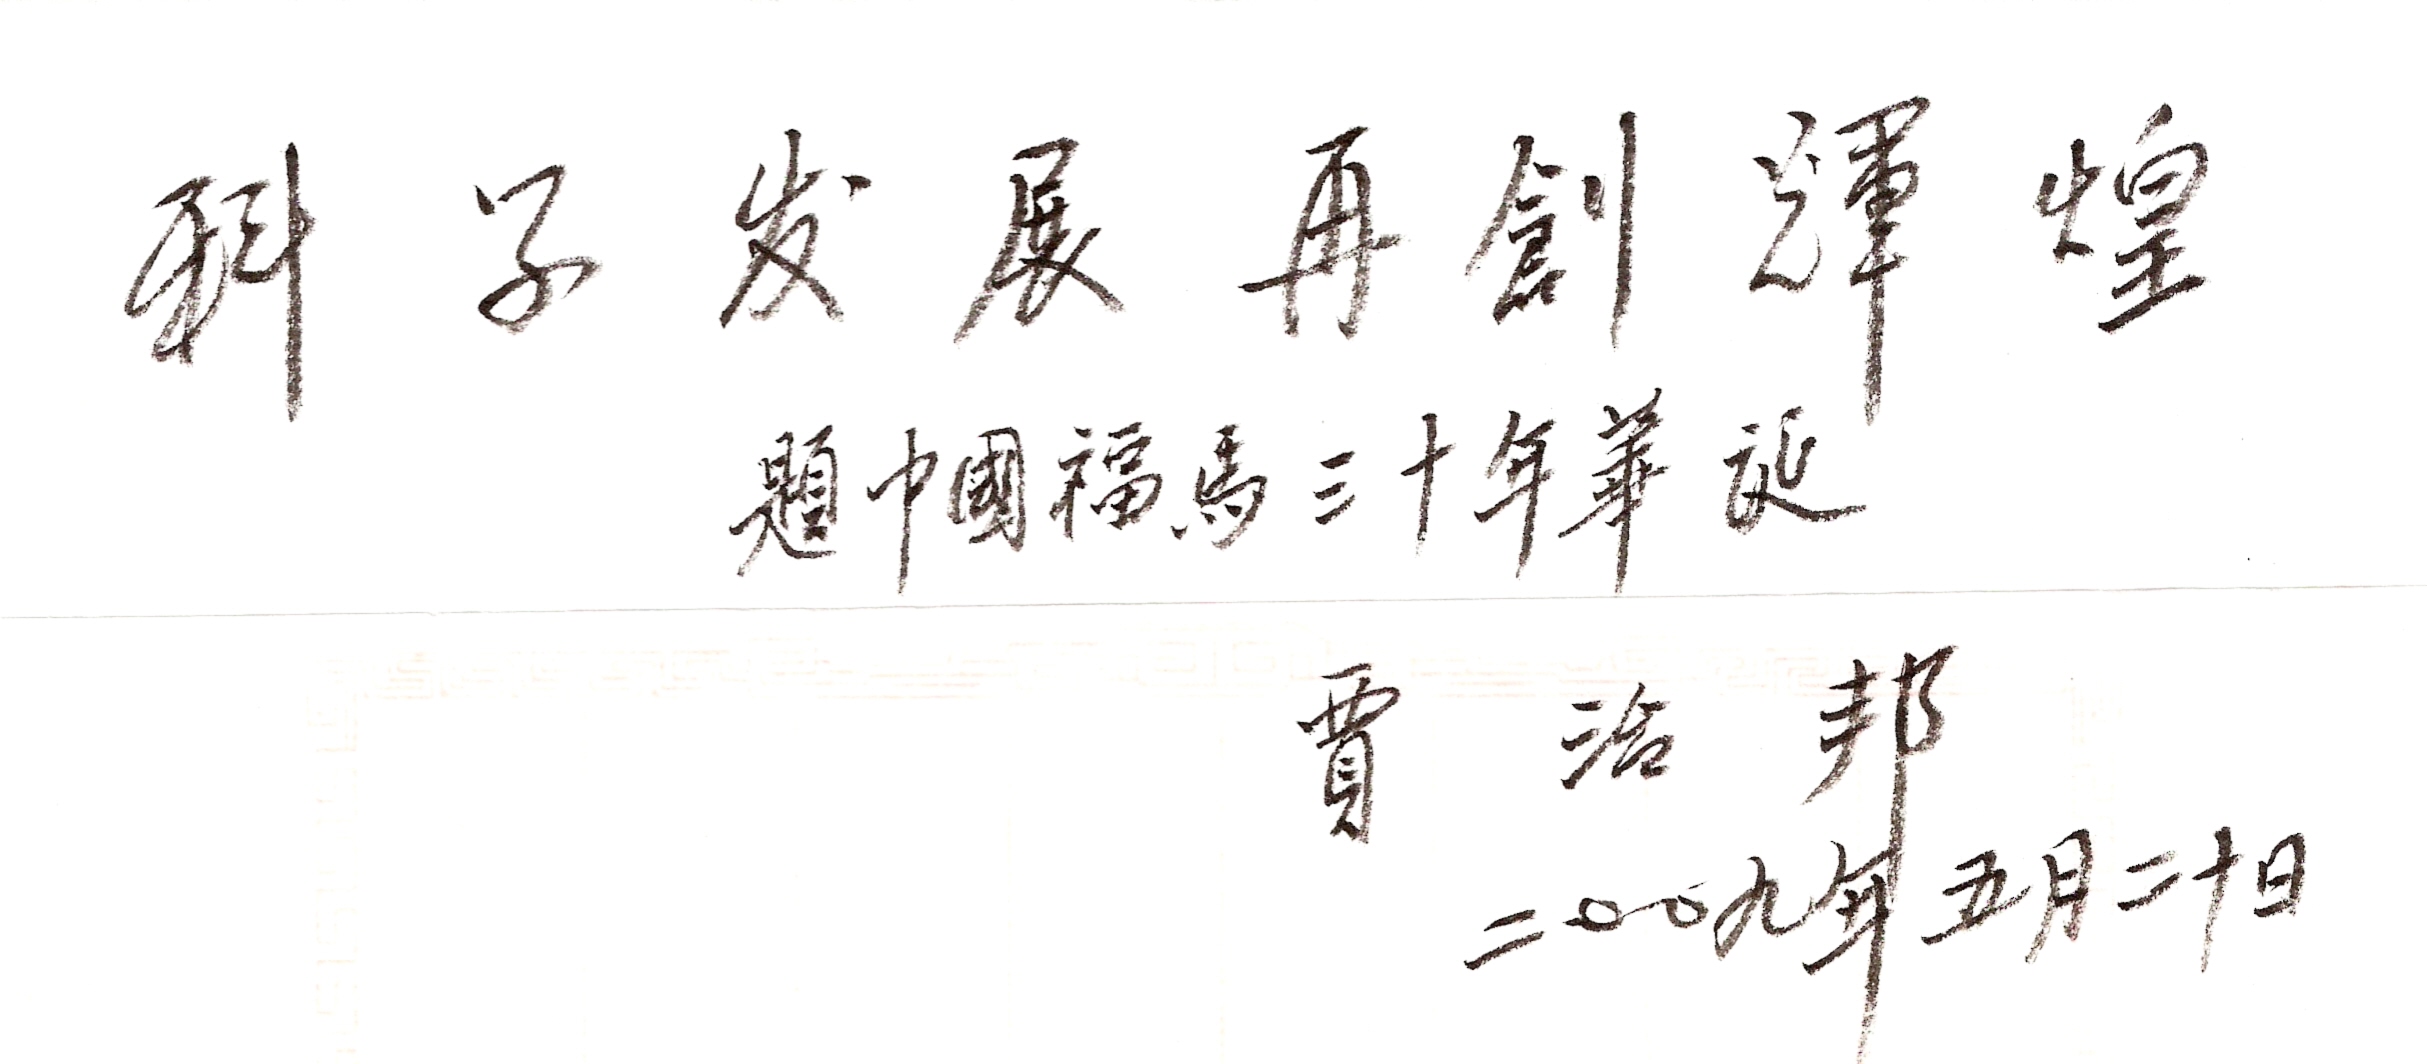 科学发展再創輝煌
題中國福馬三十年華誕
賈治邦
二〇〇九年五月二十日